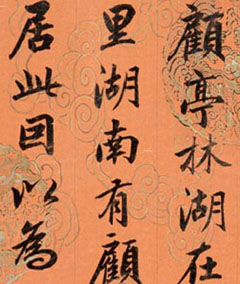 顧亭林湖在
里湖南有顧
居此因以為